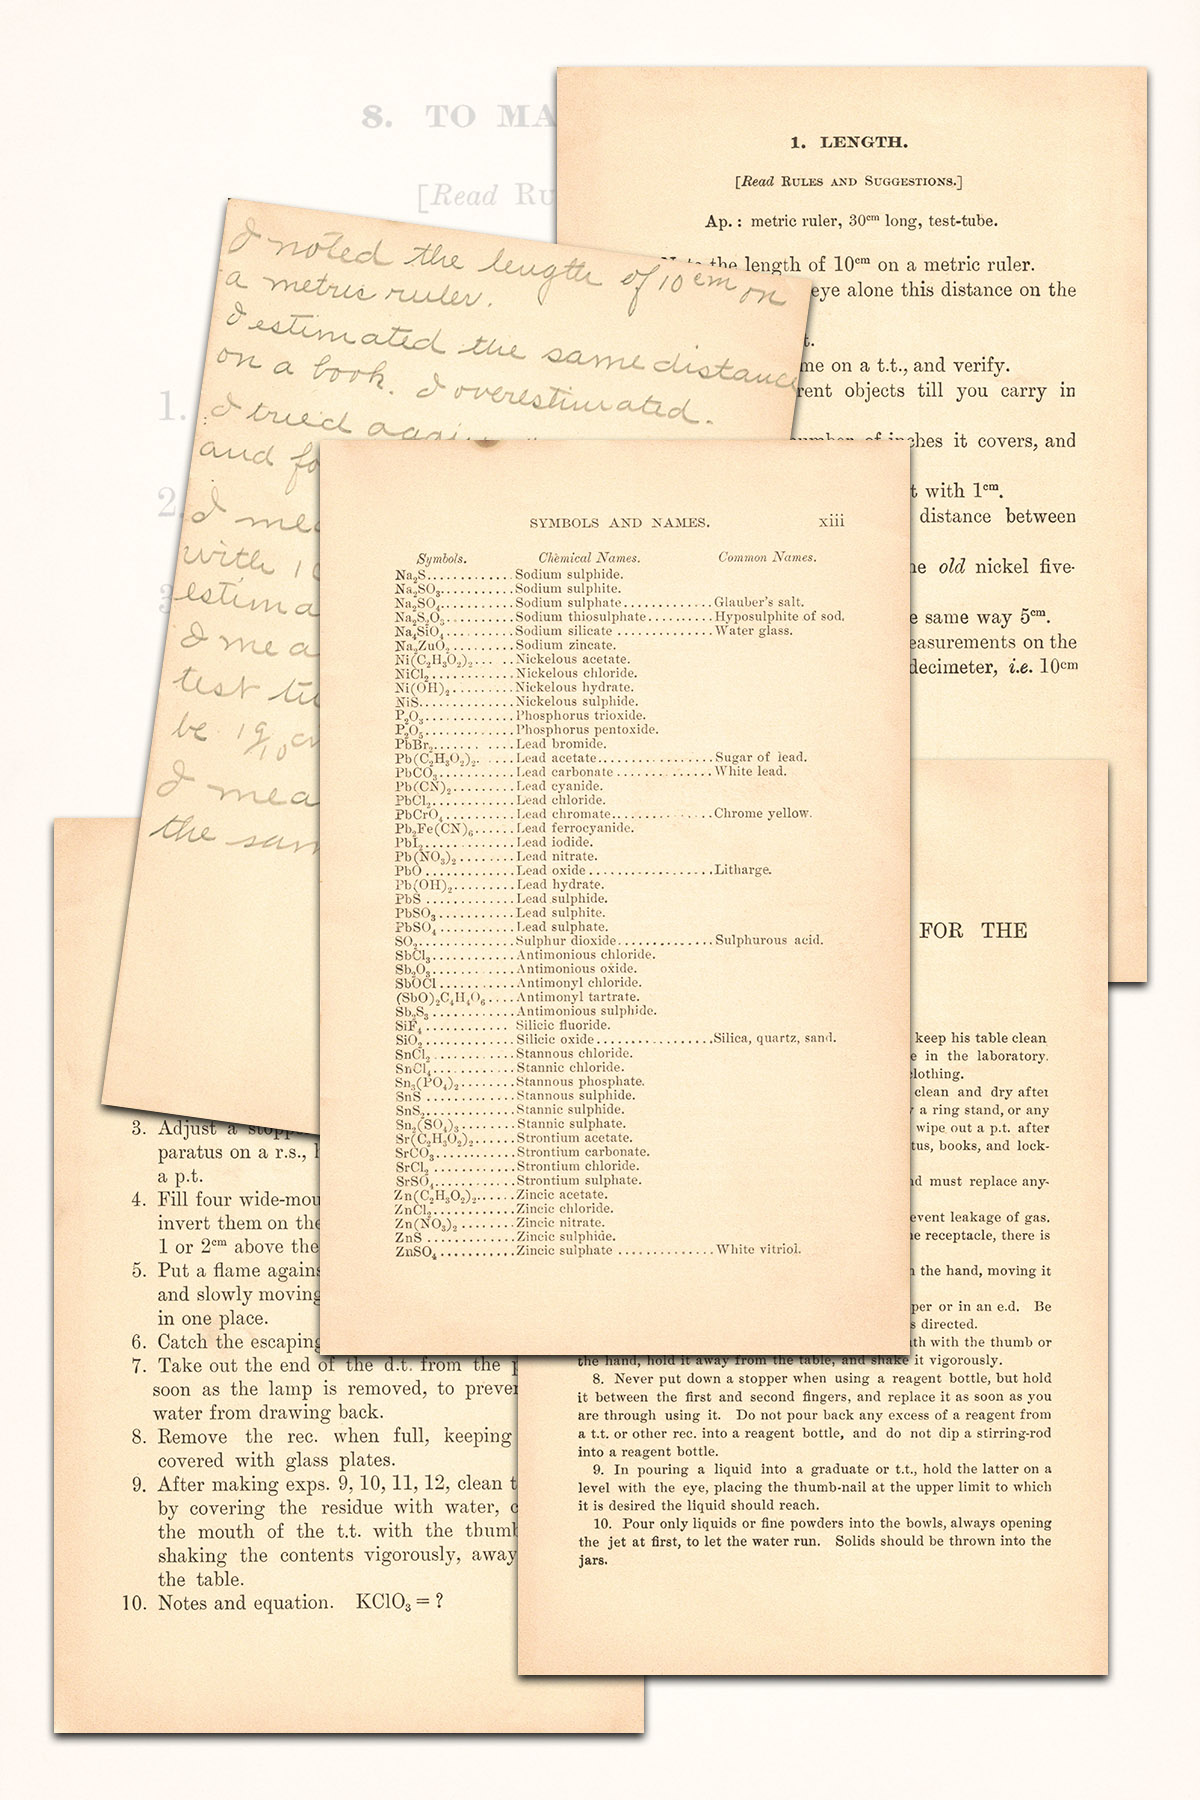 8. TO MA
[Read RU
1.
2.
3
1. LENGTH.
[Read RULES AND SUGGESTIONS.]
Ap.: metric ruler, 30cm long, test-tube.
the length of 10cm on a metric ruler.
eye alone this distance on the
t.
me on a t.t., and verify.
rent objects till you carry in
number of inches it covers, and
t with 1cm.
distance between
e old nickel five-
e same way 5cm.
easurements on the
decimeter, i.e. 10cm
I noted the length of 10 cm on
a metric ruler.
I estimated the same distance
on a book. I overestimated.
I tried again
and fo
I mea
with 1
estima
I mea
test tu
be 1 9/10 cm
I mea
the sam
SYMBOLS AND NAMES. xiii
Symbols. Chemical Names. Common Names.
Na₂S............Sodium sulphide.
Na₂SO₃..........Sodium sulphite.
Na₂SO₄..........Sodium sulphate.............Glauber's salt.
Na₂S₂O₃.........Sodium thiosulphate.........Hyposulphite of sod.
Na₄SiO₄.........Sodium silicate.............Water glass.
Na₂ZuO₂.........Sodium zincate.
Ni(C₂H₃O₂)₂.....Nickelous acetate.
NiCl₂...........Nickelous chloride.
Ni(OH)₂.........Nickelous hydrate.
NiS.............Nickelous sulphide.
P₂O₃............Phosphorus trioxide.
P₂O₅............Phosphorus pentoxide.
PbBr₂...........Lead bromide.
Pb(C₂H₃O₂)₂.....Lead acetate................Sugar of lead.
PbCO₃...........Lead carbonate..............White lead.
Pb(CN)₂.........Lead cyanide.
PbCl₂...........Lead chloride.
PbCrO₄..........Lead chromate...............Chrome yellow.
Pb₂Fe(CN)₆......Lead ferrocyanide.
PbI₂............Lead iodide.
Pb(NO₃)₂........Lead nitrate.
PbO.............Lead oxide..................Litharge.
Pb(OH)₂.........Lead hydrate.
PbS.............Lead sulphide.
PbSO₃...........Lead sulphite.
PbSO₄...........Lead sulphate.
SO₂.............Sulphur dioxide.............Sulphurous acid.
SbCl₃...........Antimonious chloride.
Sb₂O₃...........Antimonious oxide.
SbOCl...........Antimonyl chloride.
(SbO)₂C₄H₄O₆....Antimonyl tartrate.
Sb₂S₃...........Antimonious sulphide.
SiF₄............Silicic fluoride.
SiO₂............Silicic oxide...............Silica, quartz, sand.
SnCl₂...........Stannous chloride.
SnCl₄...........Stannic chloride.
Sn₃(PO₄)₂.......Stannous phosphate.
SnS.............Stannous sulphide.
SnS₂............Stannic sulphide.
Sn₂(SO₄)₃.......Stannic sulphate.
Sr(C₂H₃O₂)₂.....Strontium acetate.
SrCO₃...........Strontium carbonate.
SrCl₂...........Strontium chloride.
SrSO₄...........Strontium sulphate.
Zn(C₂H₃O₂)₂.....Zincic acetate.
ZnCl₂...........Zincic chloride.
Zn(NO₃)₂........Zincic nitrate.
ZnS.............Zincic sulphide.
ZnSO₄...........Zincic sulphate.............White vitriol.
3. Adjust a stopp
paratus on a r.s.,
a p.t.
4. Fill four wide-mou
invert them on the
1 or 2cm above the
5. Put a flame agains
and slowly moving
in one place.
6. Catch the escaping
7. Take out the end of the d.t. from the
soon as the lamp is removed, to preven
water from drawing back.
8. Remove the rec. when full, keeping
covered with glass plates.
9. After making exps. 9, 10, 11, 12, clean t
by covering the residue with water, c
the mouth of the t.t. with the thumb
shaking the contents vigorously, away
the table.
10. Notes and equation. KClO₃ = ?
FOR THE
keep his table clean
e in the laboratory.
lothing.
clean and dry after
a ring stand, or any
wipe out a p.t. after
tus, books, and lock-
d must replace any-
event leakage of gas.
e receptacle, there is
the hand, moving it
per or in an e.d. Be
s directed.
th with the thumb or
the hand, hold it away from the table, and shake it vigorously.
8. Never put down a stopper when using a reagent bottle, but hold
it between the first and second fingers, and replace it as soon as you
are through using it. Do not pour back any excess of a reagent from
a t.t. or other rec. into a reagent bottle, and do not dip a stirring-rod
into a reagent bottle.
9. In pouring a liquid into a graduate or t.t., hold the latter on a
level with the eye, placing the thumb-nail at the upper limit to which
it is desired the liquid should reach.
10. Pour only liquids or fine powders into the bowls, always opening
the jet at first, to let the water run. Solids should be thrown into the
jars.